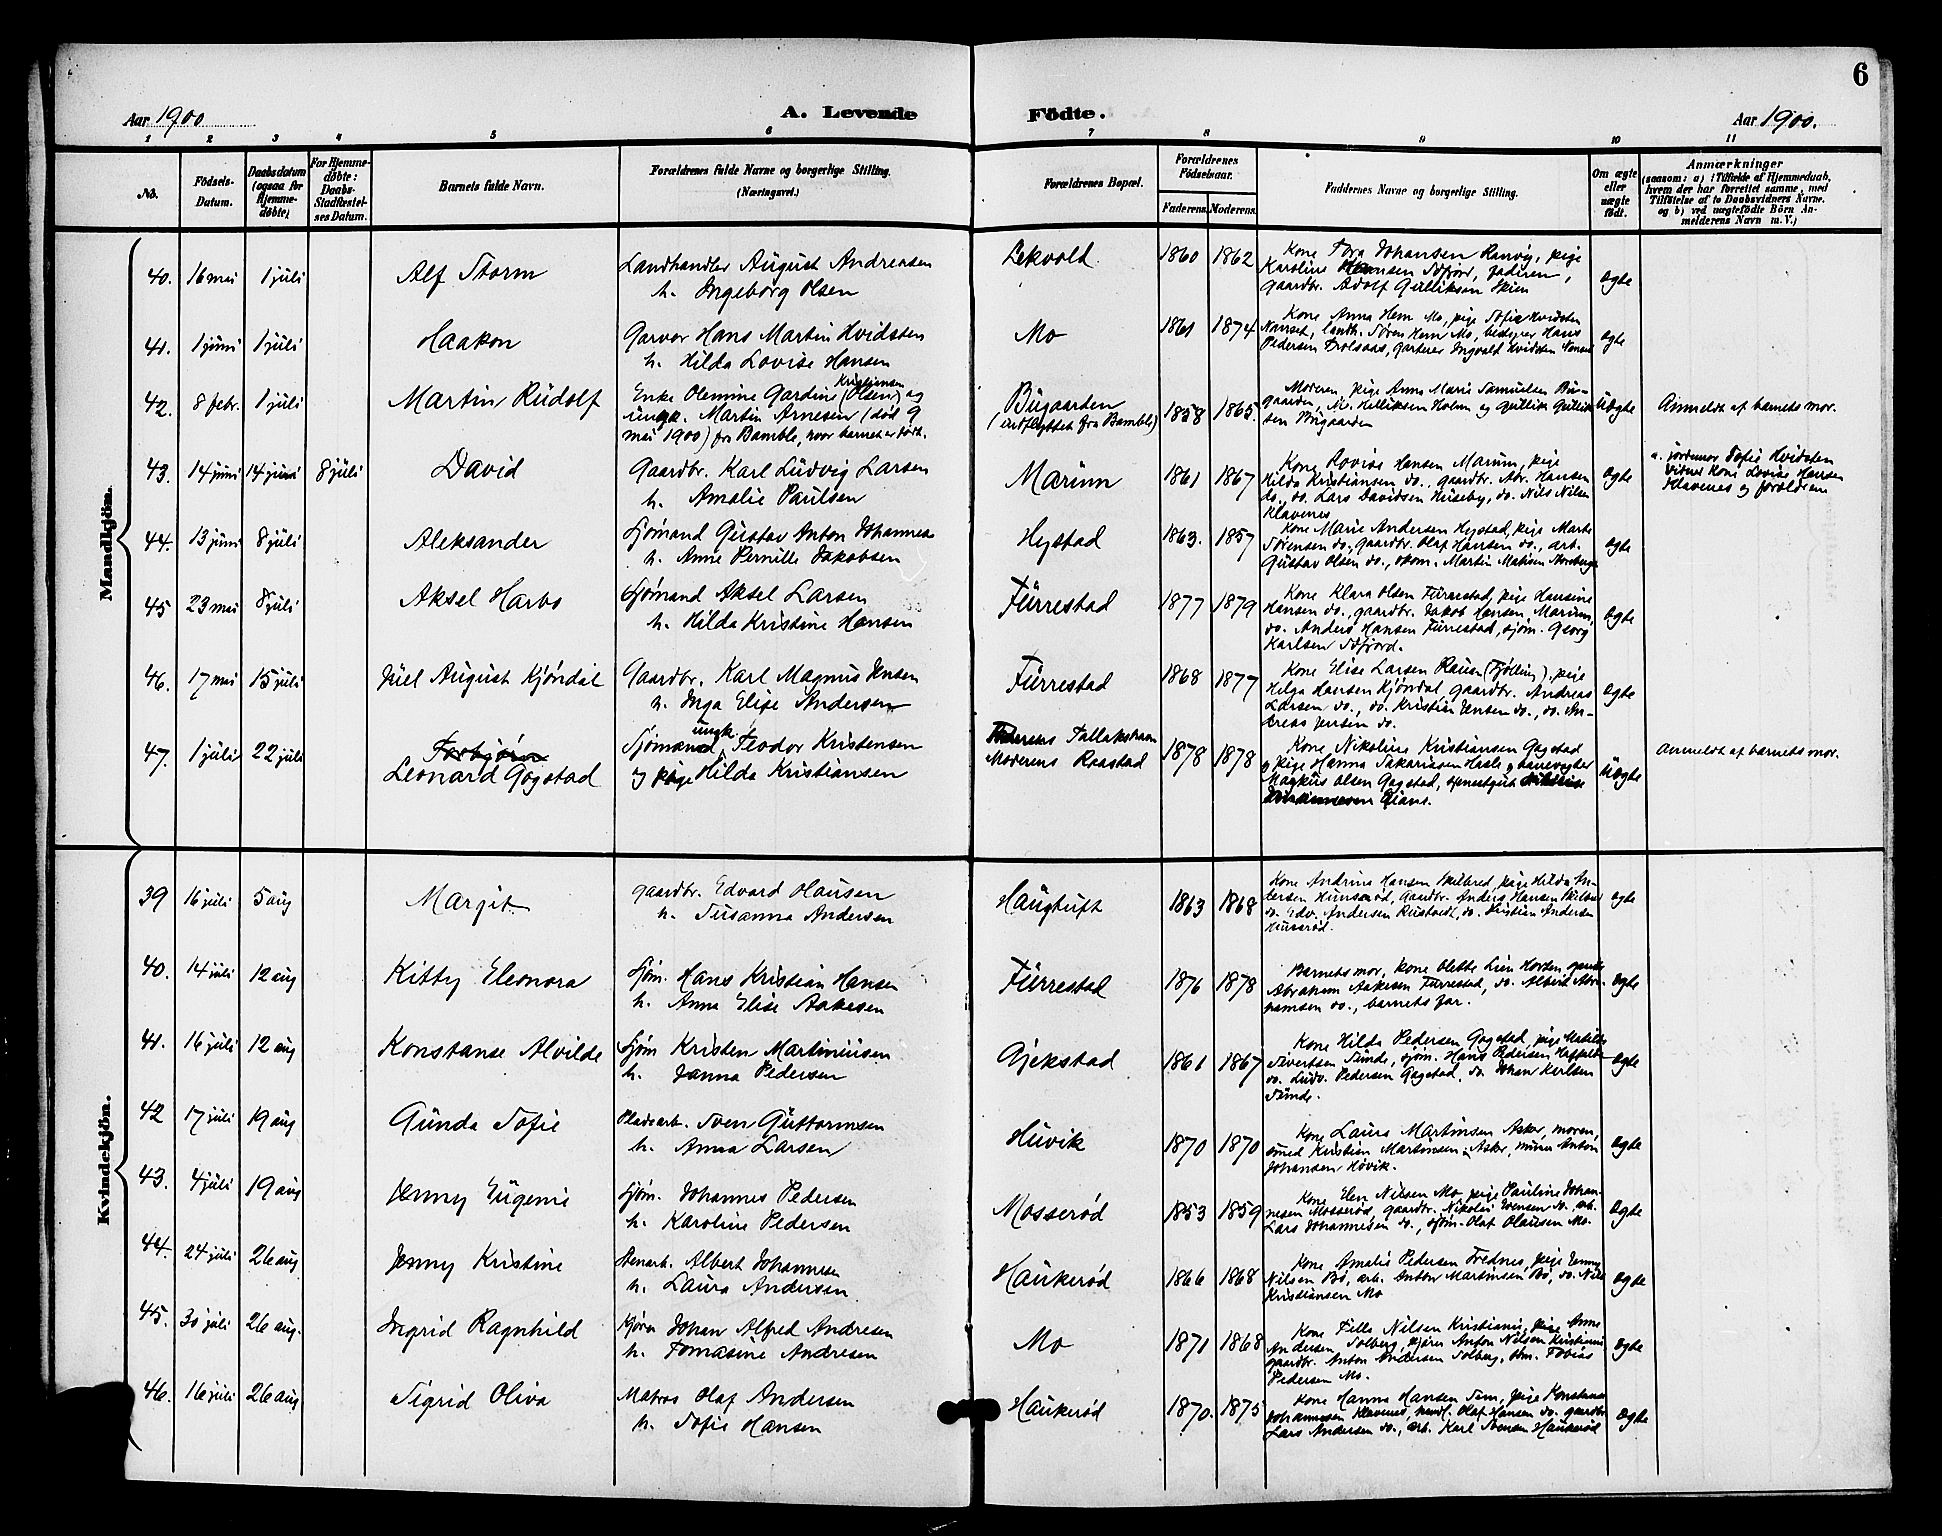 6
Aar 1900
A. Levende Födte.
Aar 1900.
1 2 3 4 5 6 7 8 9 10 11
No.
Födsels-Datum.
Daabsdatum (ogsaa for Hjemmedöbte)
For Hjemmedøbte: Daabs-Stadfæstelses Datum.
Barnets fulde Navn.
Forældrenes fulde Navne og borgerlige Stilling. (Næringsvei.)
Forældrenes Bopæl.
Forældrenes Födselsaar.
Faderens. Moderens.
Faddernes Navne og borgerlige Stilling.
Om ægte eller uægte födt.
Anmærkninger
(saasom: a) i Tilfælde af Hjemmedaab, hvem der har forrettet samme, med Tilföielse af to Daabsvidners Navne, og b) ved uægtefödte Börn Anmelderens Navn m. V.)
Mandkjön.
40. 16 mai 1 juli Alf Storm
Landhandler August Andreasen
h. Ingeborg Olsen
Lekvold 1860 1862
Kone Tora Johansen Ranvig, pige
Karoline Hansen Sdfjord, faderen,
gaardbr. Adolf Gulliksen Skien
ægte
41. 1 juni 1 juli Haakon
Garver Hans Martin Hvidsten
h. Hilda Lovise Hansen
Mo 1861 1874
Kone Anna Hem Mo, pige Sofie Hvidsten
Nanset, landh. Søren Hem Mo, bestyrer Hans
Pedersen Trolsaas, garter Ingvald Hvidsten Nanset
ægte
42. 8 febr. 1 juli Martin Rudolf
Enke Olemine Gardine Kristiansen (Olsen) og
ungk. Martin Arnesen (død 9
mai 1900) fra Bamble, hvor barnet er født.
Bugaarden
(indflyttet fra Bamble)
1858 1865.
Moderen, pige Anna Marie Samuelsen Bugaarden,
Holm og Gullik Gulliksen
Bugaarden
Uægte
Anmeldt af barnets mor.
43. 14 juni 14 juni 8 juli David
Gaardbr. Karl Ludvig Larsen
h. Amalie Paulsen
Marum 1861 1867
Kone Lovise Hansen Marum, pige
Hilda Kristiansen do., gaardbr. Abr. Hansen
do., do. Lars Davidsen Huseby, do. Nils Nilsen
Klavenes
ægte
a. jordemor Sofie Hvidsten
vidner Kone Lovise Hansen
Klavenes og forældrene
44. 13 juni 8 juli Aleksander
Sjømand Gustav Anton Johannesen
h. Anne Pernille Jakobsen
Hystad 1863. 1857
Kone Marie Andersen Hystad, pige Marte
Sørensen do., gaardbr. Olaf Hansen do., arb.
Gustav Olsen do., skom. Martin Mathisen
ægte
45 23 mai 8 juli Aksel Harbo
Sjømand Aksel Larsen
h. Hilda Kristine Hansen
Furrestad 1877 1879
Kone Klara Olsen Furrestad, pige Hansine
Hansen do., gaardbr. Jakob Hansen Marum,
do. Anders Hansen Furrestad, sjøm. Georg
Karlsen Sdfjord.
ægte
46. 17 mai 15 juli Juel August Kjøndal
Gaardbr. Karl Magnus Jensen
h. Inga Elise Andersen
Furrestad 1868 1877
Kone Elise Larsen Rauan (Tjølling), pige
Helga Hansen Kjøndal, gaardbr. Andreas
Larsen do., do. Kristian Jensen do., do. Andreas
Jensen do.
ægte
47. 1 juli 22 juli Torbjørn
Leonard Gogstad
Sjømand ungk. Teodor Kristensen
og pige Hilda Kristiansen
Faderens Tallakshavn
Moderens Raastad
1878 1878
Kone Nikoline Kristiansen Gogstad
og pige Hanna Sakariasen Hasle og banevogter
Markus Olsen Gogstad, tjenestegut
Uægte
Anmeldt af barnets mor.
Kvindekjön.
39 16 juli 5 aug Margit
gaardbr. Edvard Hansen
h. Susanna Andersen
Haugtuft 1863 1868
Kone Andrine Hansen Skilbred, pige Hilda Andersen
Hunsrød, Gaardbr. Anders Hansen Skilbred
do. Edv. Andersen Rustvedt, do. Kristian Andersen
Hunsrød.
ægte
40. 14 juli 12 aug Kitty Eleonora
Sjøm. Hans Kristian Hansen
h. Anna Elise Aakesen
Furrestad 1876 1878
Barnets mor, kone Olette Lien Horten, gaardbr.
Abraham Aakesen Furrestad, do. Albert Abrahamsen
do., barnets far.
ægte
41. 16 juli 12 aug Konstanse Alvilde
Sjøm Kristen Martiniusen
h. Janna Pedersen
Gjekstad 1861 1867
Kone Hilda Pedersen Gogstad, pige Matilde
Sivertsen Sunde, sjøm. Hans Pedersen
do. Ludv. Pedersen Gogstad, do. Johan Karlsen
Sunde.
ægte
42 17 juli 19 aug Gunda Sofie
Pladsarb. Sven Guttormsen
h. Anna Larsen
Huvik 1870 1870
Kone Laura Martinsen Asker, moren,
smed Kristian Martinsen Asker, murer Anton
Johansen Høvik.
ægte
43. 4 juli 19 aug Jenny Eugenie
Sjøm. Johannes Pedersen
h. Karoline Pedersen
Mosserød 1853 1859
Kone Elen Nilsen Mo, pige Pauline Johannesen
Mosserød, gaardbr. Nikolai Evensen do. arb.
Lars Johannesen do., sjøm. Olaf Olausen Mo.
ægte
44. 24 juli 26 aug Jenny Kristine
Stenarb. Albert Johannesen
h. Laura Andersen.
Haukerød 1866 1868
Kone Amalie Pedersen Frednes, pige Jenny
Nilsen Bø, arb. Anton Martinsen Bø, do. Nils
Kristiansen Mo
ægte
45. 30 juli 26 aug. Ingrid Ragnhild
Kjører Johan Alfred Andresen
h. Tomasine Andresen
Mo 1871 1868
Kone Tilla Nilsen Kristiania, pige Anne
Andersen Solberg, kjører Anton Nilsen Kristiania
gaardbr. Anton Andersen Solberg, skm. Tobias
Pedersen Mo.
ægte
46. 16 juli 26 aug Sigrid Oliva
Matros Olaf Andersen
h. Sofie Hansen
Haukerød 1870. 1875
Kone Hanna Hansen Fen, pige Konstanse
Johannesen Klavenes, handl. Olaf Hansen do. gaardbr.
Lars Andersen do., arb. Karl Svensen Haukerød
ægte